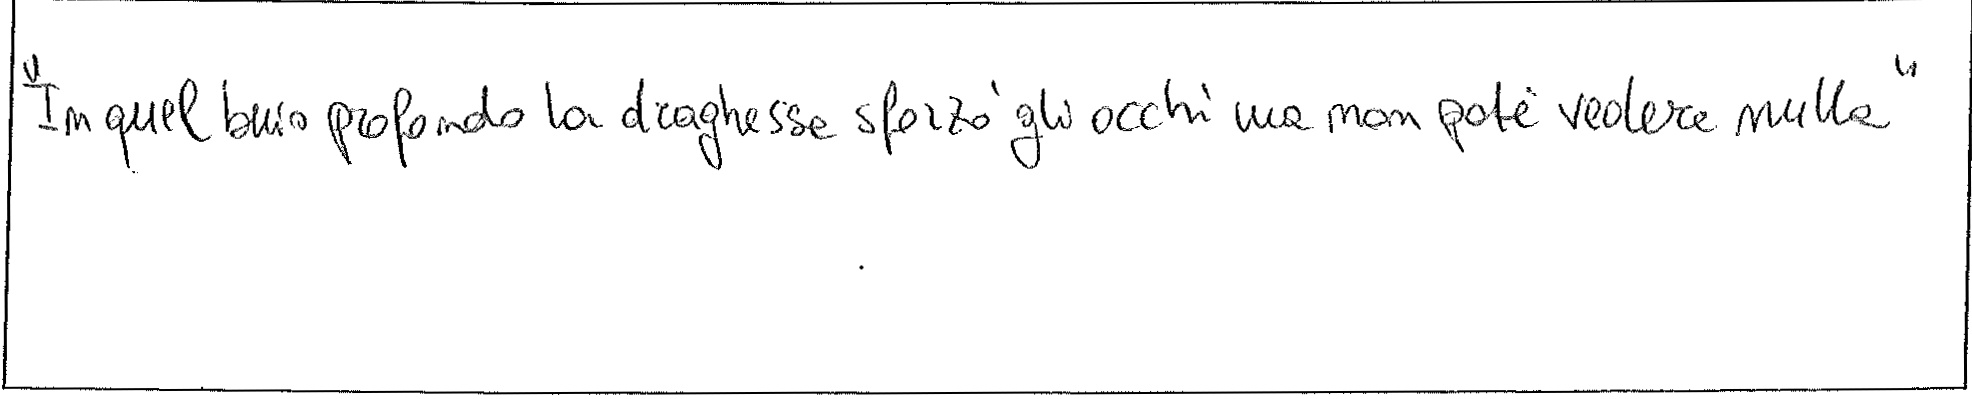 "In quel buio profondo la draghessa sforzò gli occhi ma non poté vedere nulla"